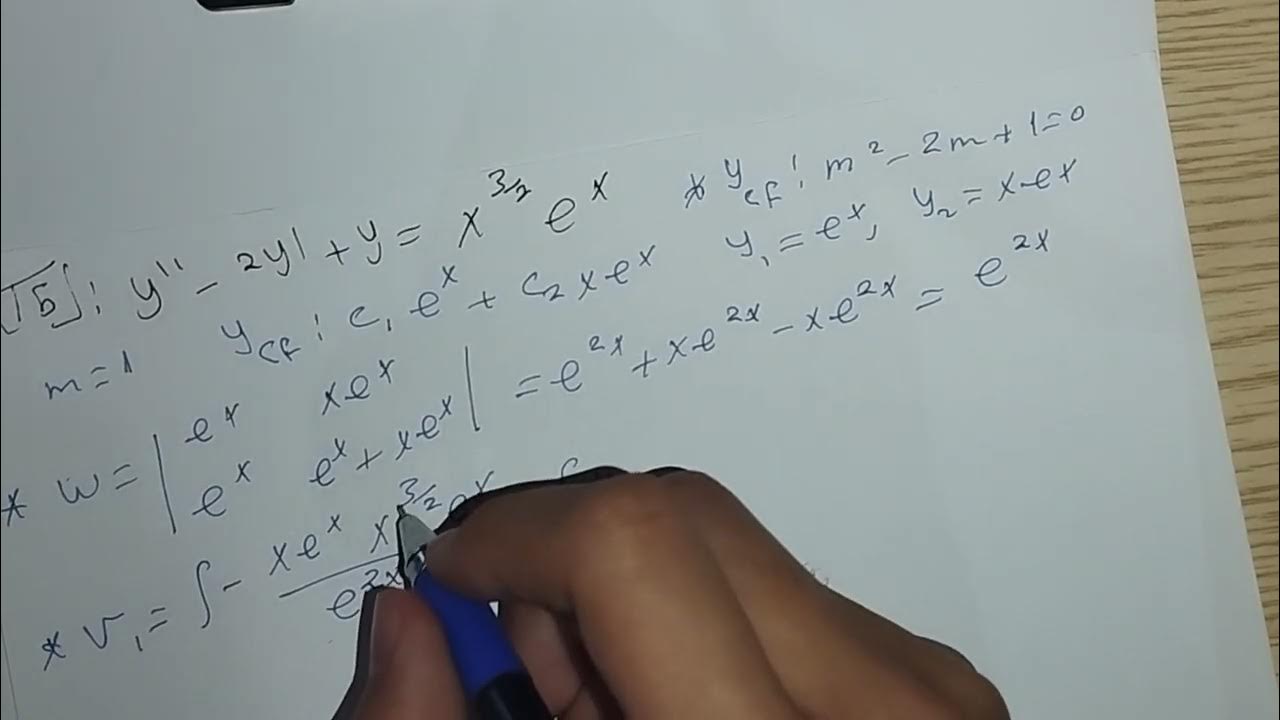 15]: y'' - 2y' + y = x^{3/2} e^x * y_{cf}: m^2 - 2m + 1 = 0
m = 1 y_{cf}: c_1 e^x + c_2 x e^x y_1 = e^x, y_2 = x e^x
* w = | e^x x e^x
e^x e^x + x e^x | = e^{2x} + x e^{2x} - x e^{2x} = e^{2x}
* v_1 = ∫ - x e^x x^{3/2} e^x
e^{2x}